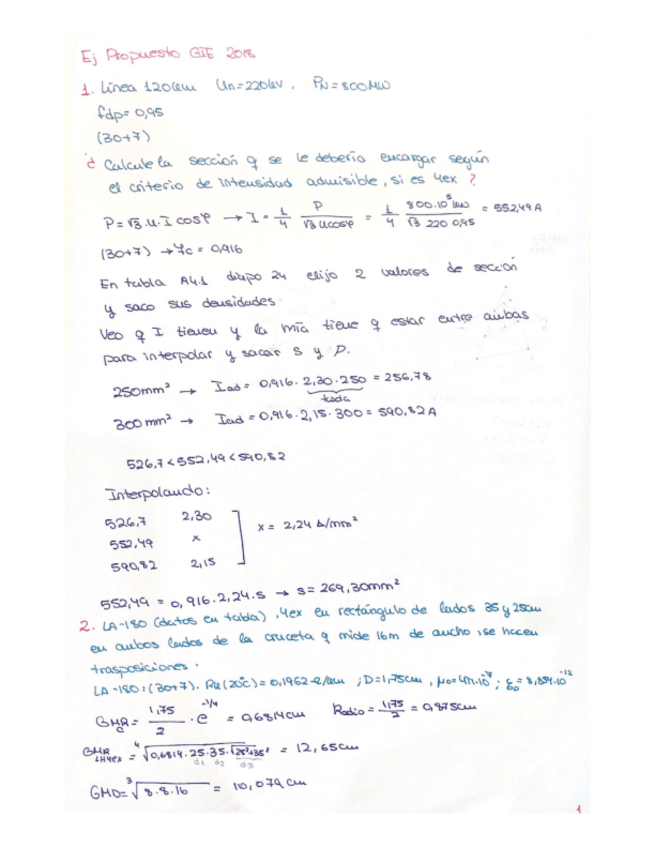 Ej Propuesto GIE 2018
1. Línea 120km Un=220kv. PN=800MW
fdp=0,95
(30+7)
¿ Calcule la sección q se le debería encargar según
el criterio de intensidad admisible, si es 4ex ?
P=√3.U.I cosφ → I= 1/4 P/√3 Ucosφ = 1/4 800.10³ kw/√3 220 0,95 = 552,49 A
(30+7) → ƒc = 0,916
En tabla A4.1 diapo 24 elijo 2 valores de sección
y saco sus densidades.
Veo q I tienen y la mía tiene q estar entre ambas
para interpolar y sacar s y D.
250mm² → Iad = 0,916. 2,30.250 = 256,78
tabla
300mm² → Iad=0,916.2,15.300= 590,82A
526,7<552,49<590,82
Interpolando:
526,7 2,30
552,49 x x= 2,24 A/mm²
590,82 2,15
552,49 = 0,916.2,24.s → s= 269,30mm²
2. LA-180 (datos en tabla), 4ex en rectángulo de lados 35 y 25cm
en ambos lados de la cruceta q mide 16m de ancho, se hacen
trasposiciones.
LA-180: (30+7). Rk(20°C)=0,1962 Ω/km ; D=1,75cm, μo=4π.10⁻⁷; ε₀= 8,854.10⁻¹²
GMRc= 1,75/2 . e^-1/4 = 0,6814cm Radio= 1,75/2 = 0,875cm
GMR LA4ex = ⁴√0,6814.25.35.√25²+35² = 12,65cm
d1 d2 d3
GMD=³√8.8.16 = 10,079 cm
1